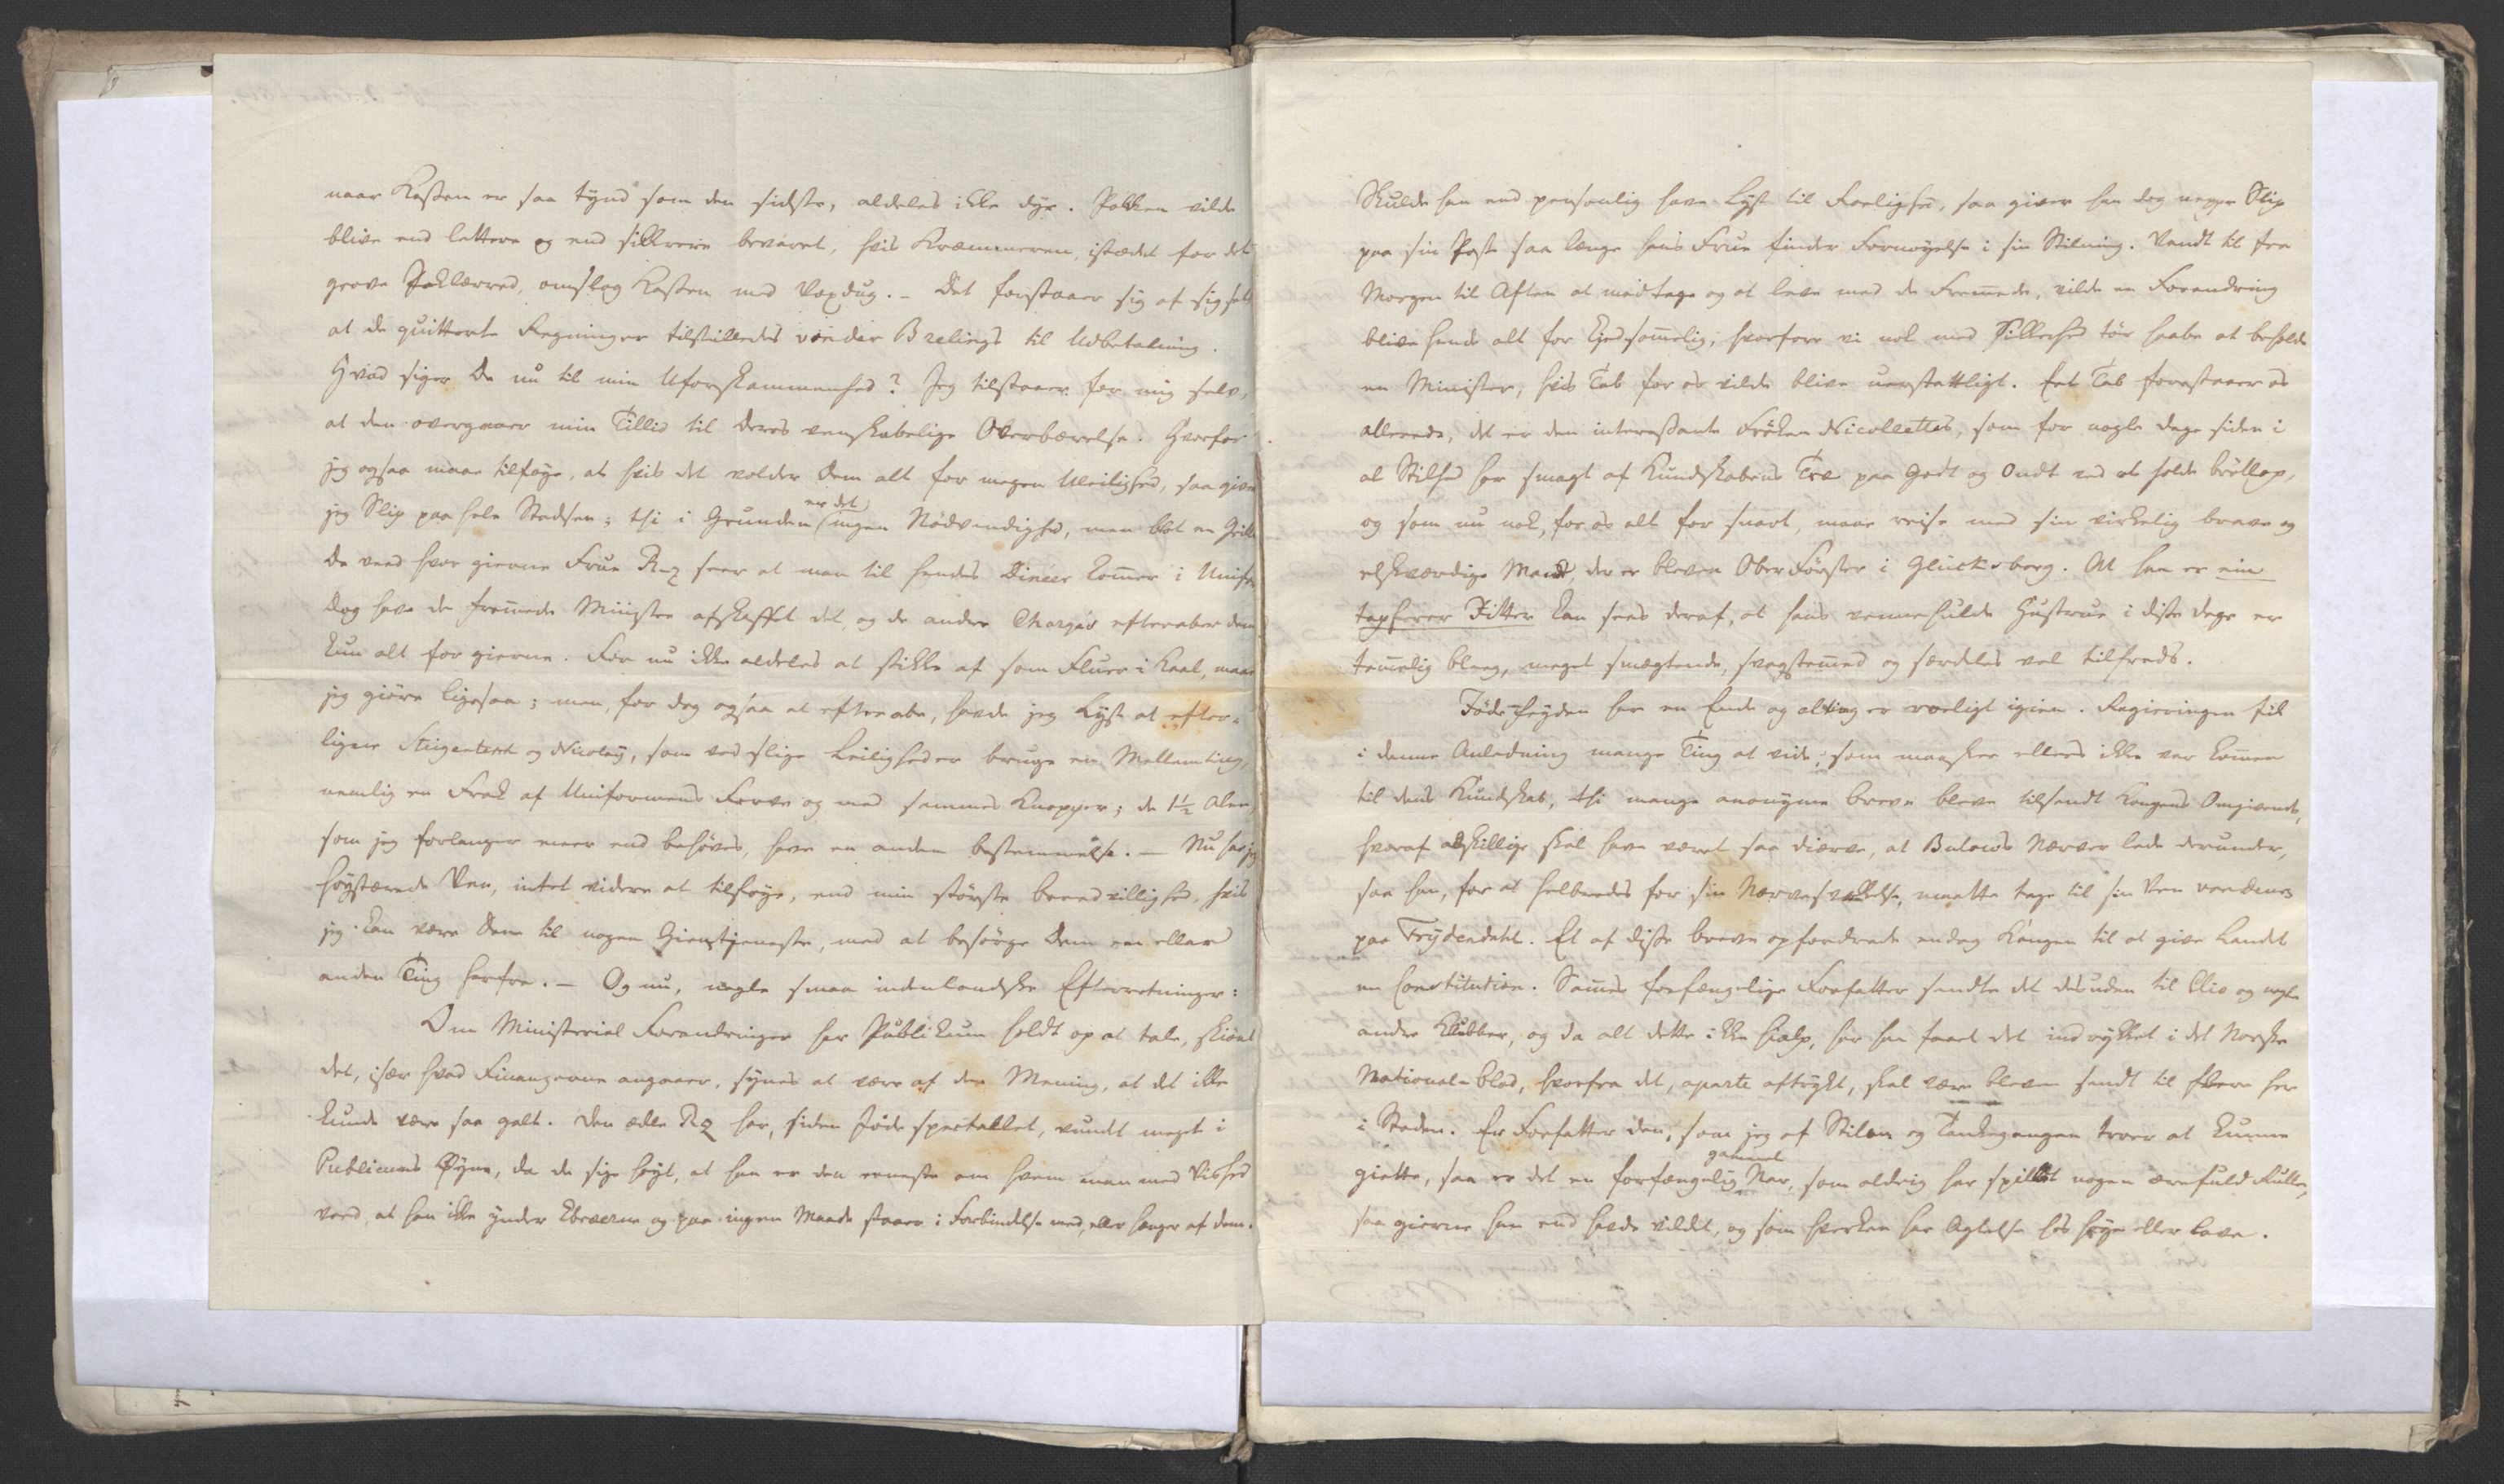 naar Kassen er saa tynd som den sidste, aldeles ikke dyr. Pakken vilde
blive end lettere og end sikkrere bevaret, hvis Kræmmeren, istædet for det
grove Paklærred, omslog Kassen med Voxdug. - Det forstaaer sig af sig selv
at de quitterte Regninger tilstilledes von der Brelings til Udbetaling.
Hvad siger De nu til min Uforskammenhed? Jeg tilstaaer for mig selv,
at den overgaaer min Tillid til Deres venskabelige Overbærelse. Hvorfor
jeg ogsaa maae tilføye, at hvis det volder Dem alt for megen Uleilighed, saa giver
er det
jeg Slip paa hele Stadsen; thi i Grunden ingen Nödvendighed, men blot en Grille
De veed hvor gierne Frue R-z seer at man til hendes Dineer kom̅er i Unifor
Dog have de frem̅ede Ministre afskaffet det, og de andre Chargés efterabe dem
kun alt for gierne. For nu ikke aldeles at stikke af som Fluen i Kaal, maae
jeg giöre ligesaa; men, for dog ogsaa at efterabe, havde jeg Lyst at efter-
ligne Steigentesch og Nicolaÿ, som ved slige Leiligheder bruge en Mellemting,
nemlig en Frak af Uniformens Farve og med sammes Knapper; de 1½ Alen,
som jeg forlanger meer end behöves, have en anden bestemmelse. — Nu har jeg
höystærede Ven, intet videre at tilføye, end min störste beredvillighed, hvis
jeg kan være Dem til nogen Gientjeneste, med at besörge Dem een eller
anden Ting herfra. — Og nu, nogle smaa indenlandske Efterretninger:
Om Ministerial Forandringer har Publikum holdt op at tale, skiönt
det, især hvad Finanzerne angaaer, synes at være af den Mening, at det ikke
kunde være saa galt. Den ædle Rz har, siden Jöde spectaklet, vundt meget i
Publicums Øyne, da de sige høyt, at han er den eeneste om hvem man med Vished
veed, at han ikke ynder Ebræerne og paa ingen Maade staaer i Forbindelse med, eller hænger af dem.
Skulde han end personlig have Lyst til Roelighed, saa giver han dog neppe Slip
paa sin Post saa længe hans Frue finder Fornøyelse i sin Stilling. Vandt til fra
Morgen til Aften at modtage og at leve med de Frem̅ede, vilde en Forandring
blive hende alt for kjedsom̅elig, hvorfore vi nok med Sikkerhed tör haabe at beholde
en Minister, hvis Tab for os vilde blive uerstattligt. Eet Tab forestaaer os
allerede, det er den interessante Fröken Nicollettes, som for nogle Dage siden i
al Stilhed har smagt af Kundskabens Træ paa Godt og Ondt ved at holde bröllop,
og som nu nok, for os alt for snart, maae reise med sin virkelig brave og
elskværdige Mand, der er bleven Ober Förster i Glücksborg. At han er ein
tapferer Ritter kan sees deraf, at hans vennehulde Hustrue i disse Dage er
tem̅elig bleeg, meget smægtende, svagstem̅ed og særdeles vel tilfreds.
Jöde-feyden har en Ende og alting er roeligt igien. Regieringen fik
i denne Anledning mange Ting at vide, som maaskee ellers ikke var kom̅en
til dens Kundskab, thi mange anonyme breve bleve tilsendt Kongens Omgivende,
hvoraf adskillige skal have været saa diærve, at Bulows Nerver lede derunder,
saa han, for at helbredes for sin Nervesvækkelse, maatte tage til sin Ven
paa Frydendahl. Et af disse breve opfordrede endog Kongen til at give Landet
en Constitution. Sam̅es forfængelige Forfatter sendte det desuden til Clio og nogle
andre Klubber, og da alt dette ikke hialp, har han faaet det indrykket i det Norske
National-blad, hvorfra det, aparte aftrykt, skal være bleven sendt til flere her
i Staden. Er Forfatter den, som jeg af Stilen og Tankegangen troer at kunne
gammel
giette, saa er det en forfængelig Nar, som aldrig har spillet nogen ærefuld Rulle,
saa gierne han end havde villet, og som hverken har Agtelse hos høye eller lave.